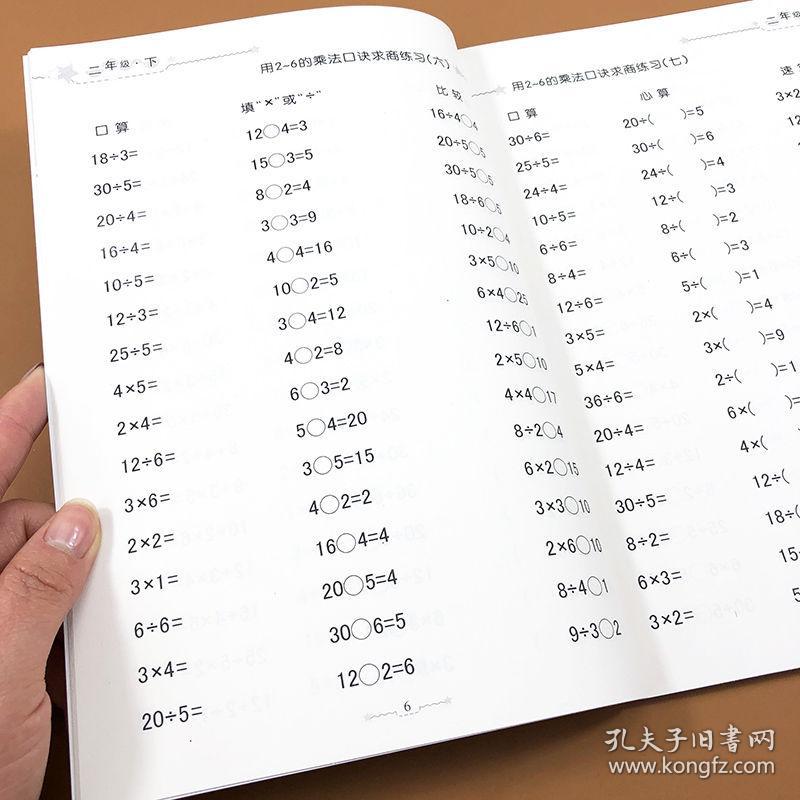 二年级·下
用2~6的乘法口诀求商练习(六)
口算
18÷3=
30÷5=
20÷4=
16÷4=
10÷5=
12÷3=
25÷5=
4×5=
2×4=
12÷6=
3×6=
2×2=
3×1=
6÷6=
3×4=
20÷5=
填“×”或“÷”
12○4=3
15○3=5
8○2=4
3○3=9
4○4=16
10○2=5
3○4=12
4○2=8
6○3=2
5○4=20
3○5=15
4○2=2
16○4=4
20○5=4
30○6=5
12○2=6
比较
16÷4○4
20÷5○5
30÷5○5
18÷6○5
10÷2○4
3×5○10
6×4○25
12÷6○1
2×5○10
4×4○17
8÷2○4
6×2○15
3×3○10
2×6○10
8÷4○1
9÷3○2
6
二年级
用2~6的乘法口诀求商练习(七)
口算
30÷6=
25÷5=
24÷4=
10÷5=
6÷6=
8÷4=
12÷6=
3×5=
5×4=
36÷6=
20÷4=
12÷4=
30÷5=
8÷2=
6×3=
3×2=
心算
20÷( )=5
30÷( )=6
24÷( )=4
12÷( )=3
8÷( )=2
6÷( )=3
5÷( )=1
2×( )=4
3×( )=9
2÷( )=1
6×( )=
4×( )
12÷(
18÷(
15÷
5
速
3×2
孔夫子旧书网
www.kongfz.com